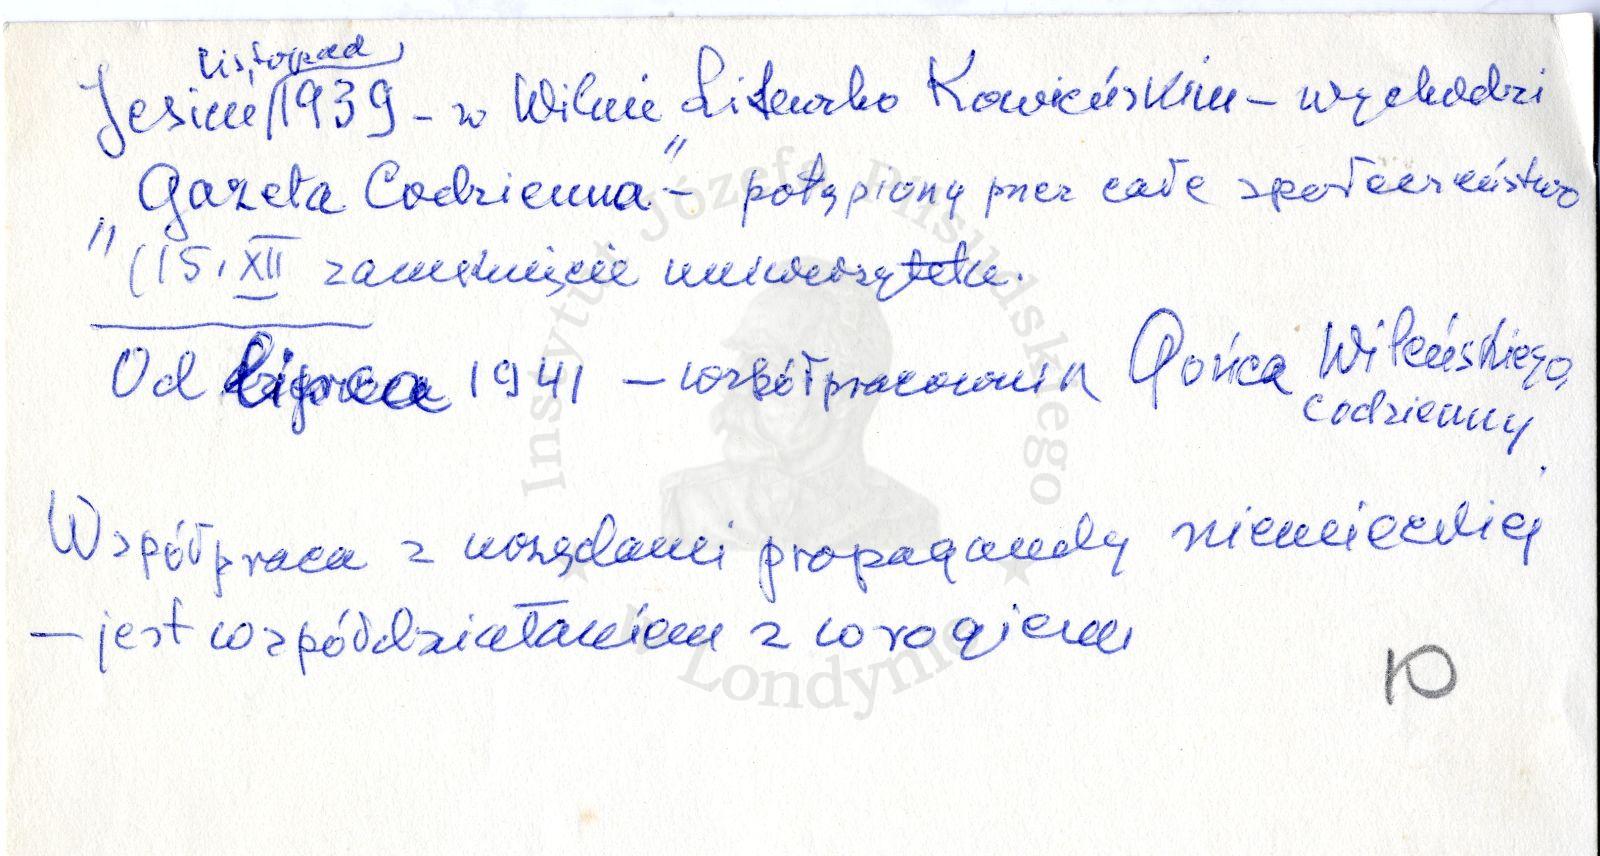 listopad
Jesień/1939 - w Wilnie Litewsko Kowieńskim - wychodzi
"Gazeta Codzienna" - potępiony przez całe społeczeństwo
(15. XII zamknięcie uniwersytetu.
Od lipca 1941 - współpracownik Gońca Wileńskiego,
Codzienny
Współpraca z urzędami propagandy niemieckiej
- jest współdziałaniem z wrogiem
10
Instytut Józefa Piłsudskiego
w Londynie